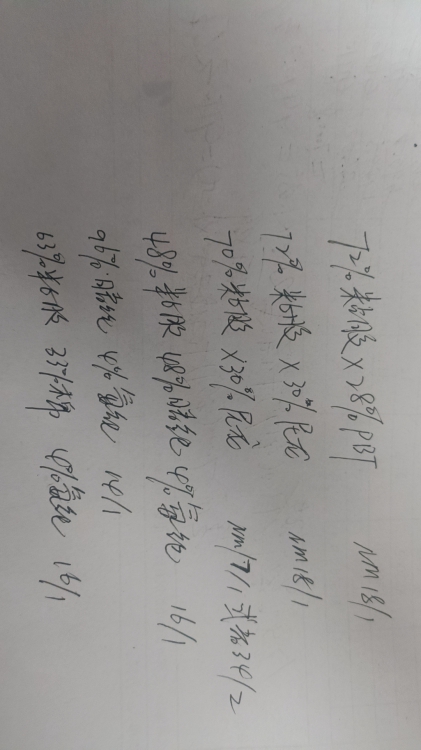 72% 粘胶 × 28% PBT NM18/1
粘胶 × 30% 尼龙 NM18/1
70% 粘胶 ×30% 尼龙 NM17/1 或者34/2
48% 粘胶 48% 腈纶 4% 氨纶 16/1
96% 腈纶 4% 氨纶 14/1
63% 粘胶 33% 4% 氨纶 16/1